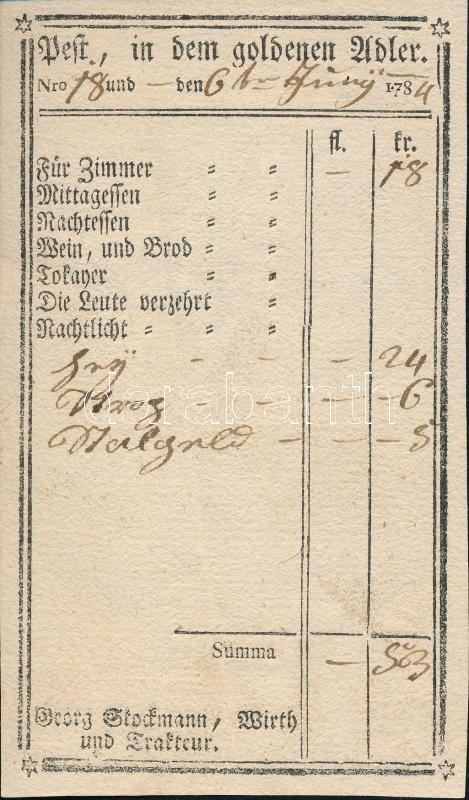 Pest, in dem goldenen Adler.
Nro 18 und — den 6 Juny 1784
fl. kr.
Für Zimmer " " — 18
Mittagessen " "
Nachtessen " "
Wein, und Brod " "
Tokayer " "
Die Leute verzehrt "
Nachtlicht " " "
Hey - - - 24
- - - 6
Stalgeld - - - 5
Summa — 53
Georg Stockmann, Wirth
und Trakteur.
darabanth